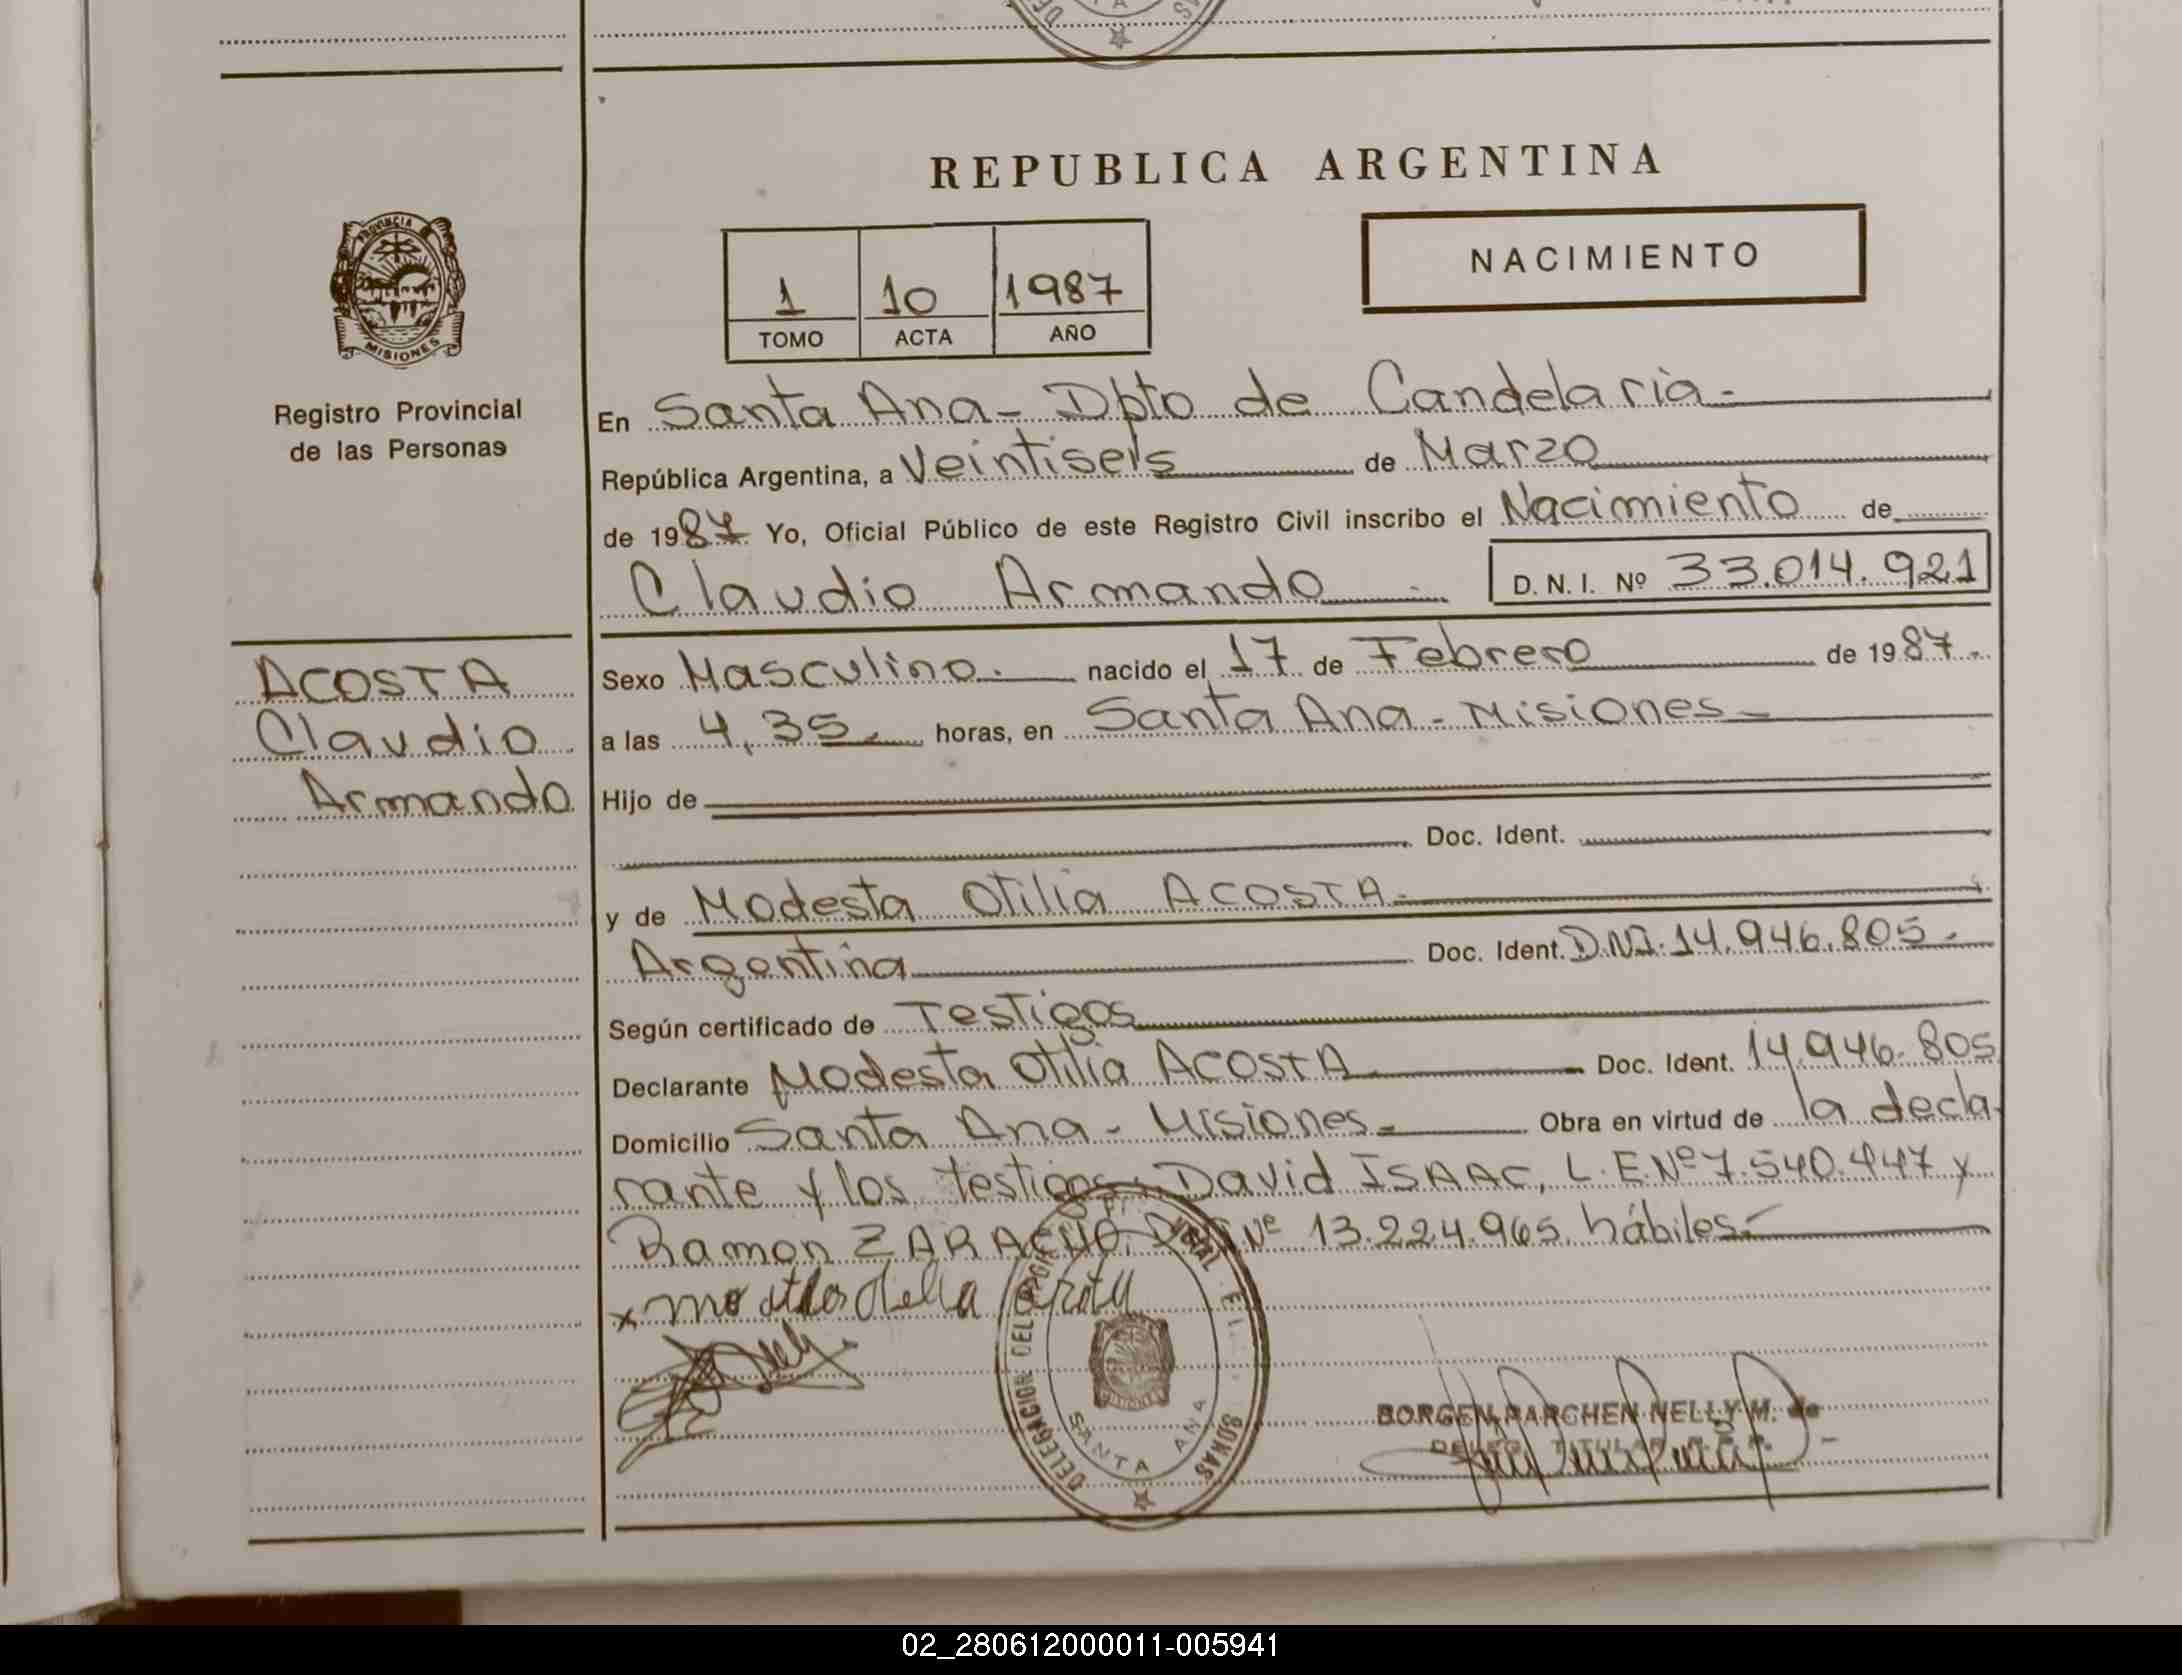 REPUBLICA ARGENTINA
NACIMIENTO
1 10 1987
TOMO ACTA AÑO
PROVINCIA
MISIONES
Registro Provincial
de las Personas
En Santa Ana - Dpto de Candelaria -
República Argentina, a Veintiseis de Marzo
de 1987 Yo, Oficial Público de este Registro Civil inscribo el Nacimiento de
Claudio Armando D. N. I. Nº 33.014.921
ACOSTA
Claudio
Armando
Sexo Masculino. nacido el 17 de Febrero de 1987.
a las 4,35. horas, en Santa Ana - Misiones -
Hijo de
Doc. Ident.
y de Modesta Otilia ACOSTA.
Argentina Doc. Ident. D.N.I. 14.946.805.
Según certificado de Testigos
Declarante Modesta Otilia ACOSTA Doc. Ident. 14.946.805
Domicilio Santa Ana - Misiones - Obra en virtud de la decla
rante y los testigos: David ISAAC, L.E.Nº 7.540.447 y
Ramon ZARACHO, Nº 13.224.965. hábiles.
x
DELEGACION DEL
SANTA ANA
BORGEN PARCHEN NELLY M. de
TITULAR
02_280612000011-005941